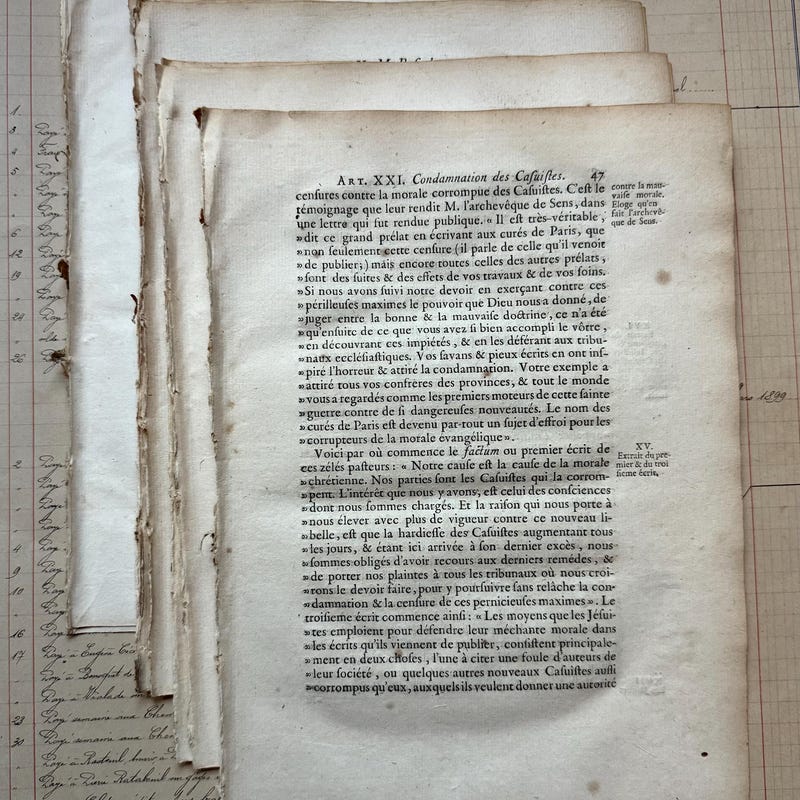 ART. XXI. Condamnation des Casuistes. 47
cenſures contre la morale corrompue des Caſuiſtes. C'eſt le
témoignage que leur rendit M. l'archevêque de Sens, dans
une lettre qui fut rendue publique. « Il eſt très-véritable,
» dit ce grand prélat en écrivant aux curés de Paris, que
» non ſeulement cette cenſure (il parle de celle qu'il venoit
» de publier;) mais encore toutes celles des autres prélats,
» ſont des ſuites & des effets de vos travaux & de vos ſoins.
» Si nous avons ſuivi notre devoir en exerçant contre ces
» périlleuſes maximes le pouvoir que Dieu nous a donné, de
» juger entre la bonne & la mauvaiſe doctrine, ce n'a été
» qu'enſuite de ce que vous avez ſi bien accompli le vôtre,
» en découvrant ces impiétés, & en les déférant aux tribu-
» naux eccléſiaſtiques. Vos ſavans & pieux écrits en ont inſ-
» piré l'horreur & attiré la condamnation. Votre exemple a
» attiré tous vos confrères des provinces, & tout le monde
» vous a regardés comme les premiers moteurs de cette ſainte
» guerre contre de ſi dangereuſes nouveautés. Le nom des
» curés de Paris eſt devenu par-tout un ſujet d'effroi pour les
» corrupteurs de la morale évangélique ».
Voici par où commence le factum ou premier écrit de
ces zélés paſteurs : « Notre cauſe eſt la cauſe de la morale
» chrétienne. Nos parties ſont les Caſuiſtes qui la corrom-
» pent. L'intérêt que nous y avons, eſt celui des conſciences
» dont nous ſommes chargés. Et la raiſon qui nous porte à
» nous élever avec plus de vigueur contre ce nouveau li-
» belle, eſt que la hardieſſe des Caſuiſtes augmentant tous
» les jours, & étant ici arrivée à ſon dernier excès, nous
» ſommes obligés d'avoir recours aux derniers remédes, &
» de porter nos plaintes à tous les tribunaux où nous croi-
» rons le devoir faire, pour y pourſuivre ſans relâche la con-
» damnation & la cenſure de ces pernicieuſes maximes ». Le
troiſieme écrit commence ainſi : « Les moyens que les Jéſui-
» tes emploient pour défendre leur méchante morale dans
» les écrits qu'ils viennent de publier, conſiſtent principale-
» ment en deux choſes, l'une à citer une foule d'auteurs de
» leur ſociété, ou quelques autres nouveaux Caſuiſtes auſſi
» corrompus qu'eux, auxquels ils veulent donner une autorité
contre la mau-
vaiſe morale.
Eloge qu'en
fait l'archevê-
que de Sens.
XV.
Extrait du pre-
mier & du troi
ſieme écrit.
1899
1
3
4
5
6
12
19
24
26
2
4
9
10
16
17 Payé à
Payé à
Payé à
23 Payé semaine aux
30 Payé semaine aux
Payé à
Payé à